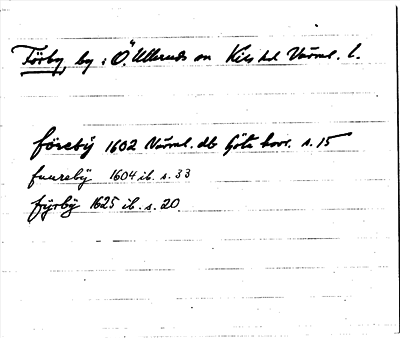 Törby, by i Ö. Ulleruds sn Kils hd Värml. l.
föreby 1602 Värml. db Göta hovr. s. 15
fuureby 1604 ib. s. 33
fyrby 1625 ib. s. 20